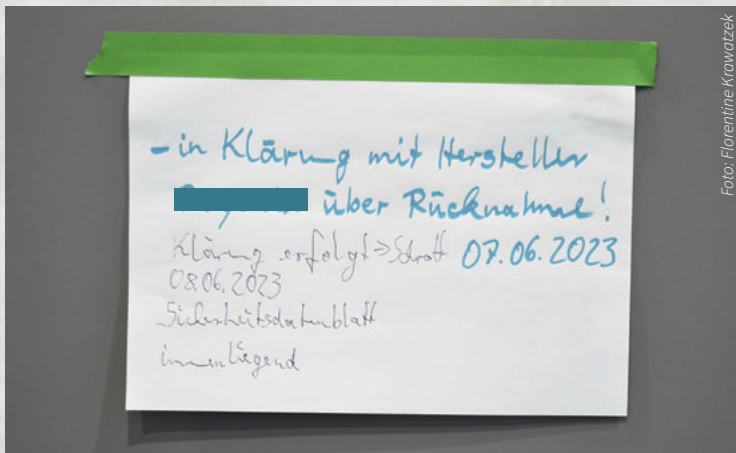 - in Klärung mit Hersteller
über Rücknahme!
07.06.2023
Klärung erfolgt => Schrott
08.06.2023
Sicherheitsdatenblatt
innenliegend
Foto: Florentine Krawatzek